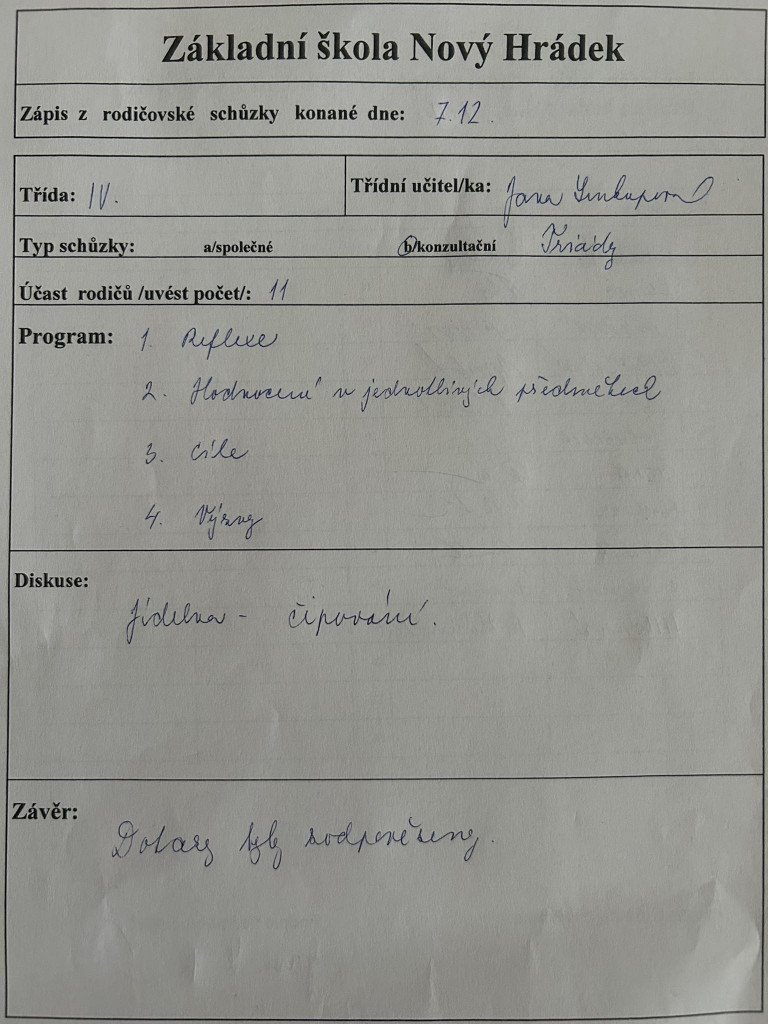 Základní škola Nový Hrádek
Zápis z rodičovské schůzky konané dne: 7.12.
Třída: IV.
Třídní učitel/ka: Jana
Typ schůzky: a/společné b/konzultační Triády
Účast rodičů /uvést počet/: 11
Program: 1. Reflexe
2. Hodnocení v jednotlivých předmětech
3. Cíle
4. Výzvy
Diskuse:
Jídelna - čipování.
Závěr:
Dotazy byly zodpovězeny.